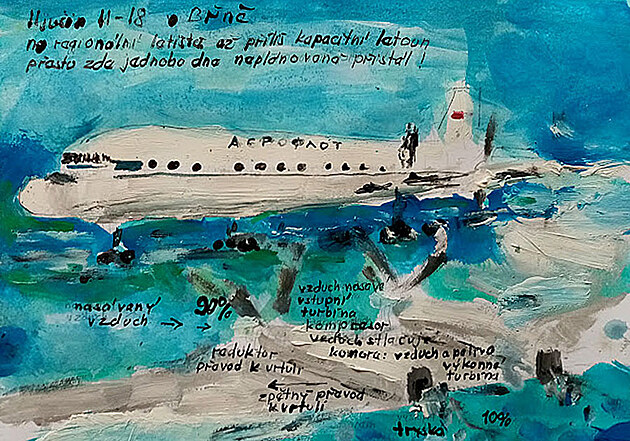 Iljušin Il-18 v Brně
na regionální letiště až příliš kapacitní letoun
přesto zde jednoho dne naplánovaně přistál!
АЕРОФЛОТ
nasávaný
vzduch →
90%
→
vzduch nasaje
vstupní
turbína
kompresor
vzduch stlačuje
komora: vzduch a paliva
výkonná
turbína
reduktor
převod k vrtuli
←
zpětný převod
k vrtuli
tryska
10%